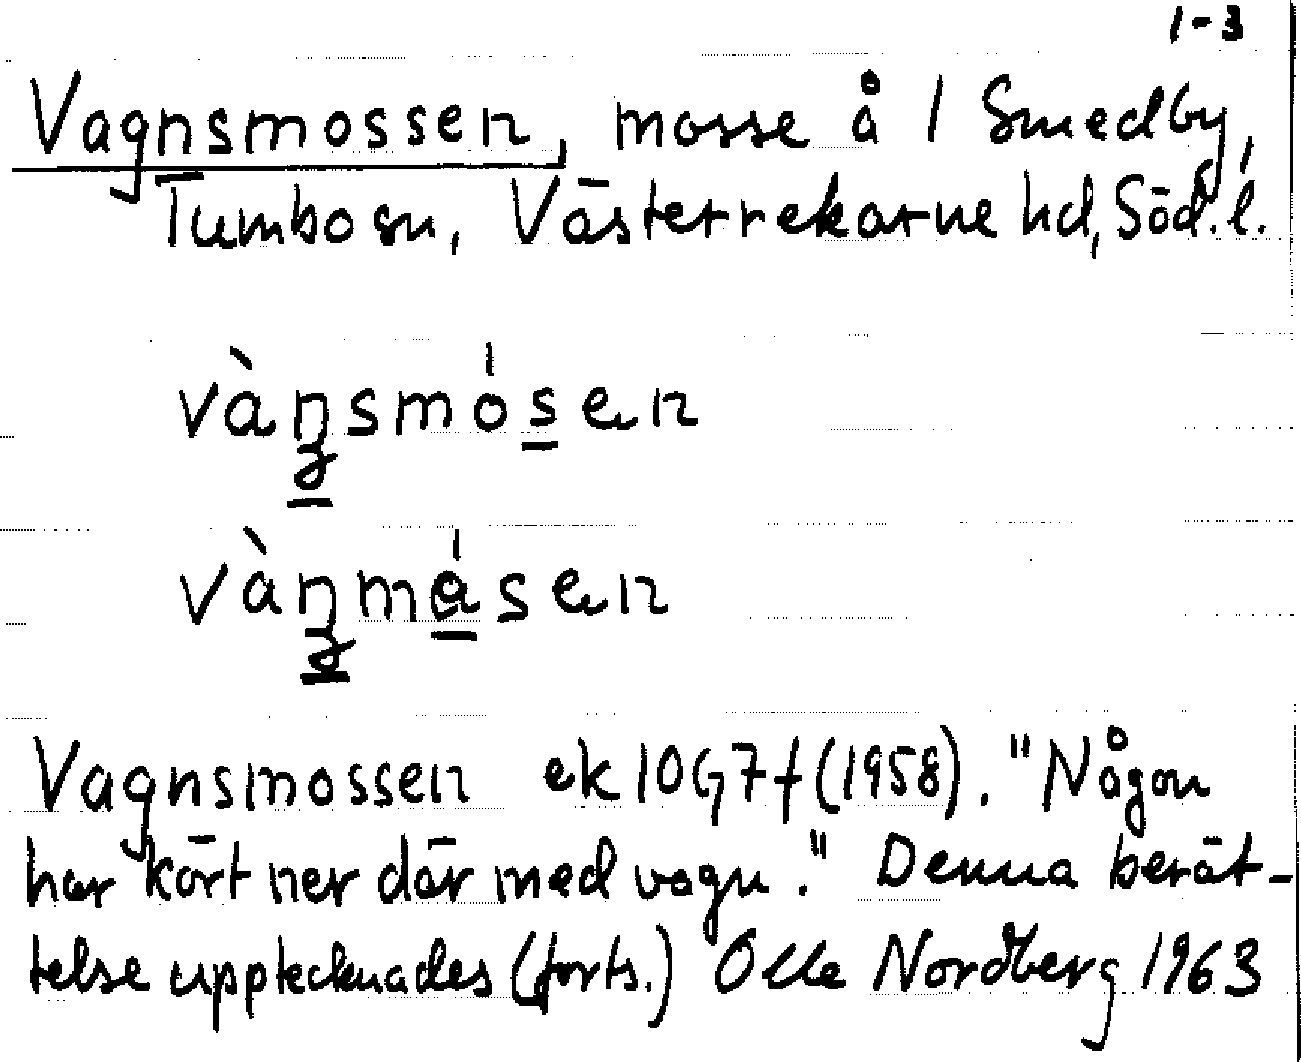 1-3
Vagnsmossen, mosse å 1 Smedby,
Tumbo sn, Västerrekarne hd, Söd. l.
vàŋsmósen
vàŋmásen
Vagnsmossen ek 10G7f (1958). "Någon
har kört ner där med vagn." Denna berät-
telse upptecknades (forts.) Olle Nordberg 1963